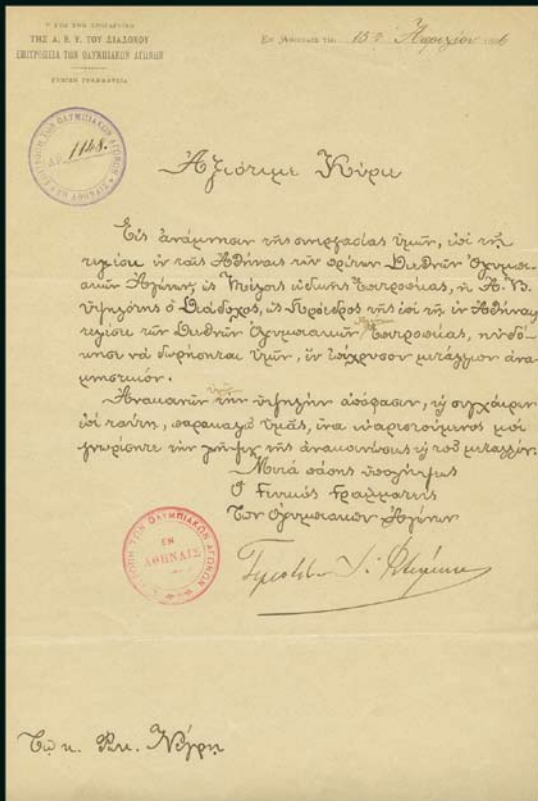 Η ΥΠΟ ΤΗΝ ΠΡΟΕΔΡΕΙΑΝ
ΤΗΣ Α. Β. Υ. ΤΟΥ ΔΙΑΔΟΧΟΥ
ΕΠΙΤΡΟΠΕΙΑ ΤΩΝ ΟΛΥΜΠΙΑΚΩΝ ΑΓΩΝΩΝ
ΓΕΝΙΚΗ ΓΡΑΜΜΑΤΕΙΑ
Ἐν Ἀθήναις τῇ 15ῃ Ἀπριλίου
ΕΠΙΤΡΟΠΗ ΤΩΝ ΟΛΥΜΠΙΑΚΩΝ ΑΓΩΝΩΝ
ΑΡ. 1148.
Ἀξιότιμε Κύριε
Εἰς ἀνάμνησιν τῆς συνεργασίας ὑμῶν, ἐπὶ τῇ
τελέσει ἐν ταῖς Ἀθήναις τῶν πρώτων Διεθνῶν Ὀλυμπι-
ακῶν Ἀγώνων, ὡς Μέλους εἰδικῆς Ἐπιτροπείας, ἡ Α. Β.
Ὑψηλότης ὁ Διάδοχος, ὡς Πρόεδρος τῆς ἐπὶ τῇ ἐν Ἀθήναις
τελέσει τῶν Διεθνῶν Ὀλυμπιακῶν Ἐπιτροπείας, ηὐδό-
κησε νὰ δωρήσηται ὑμῖν, ἓν ἐπίχρυσον μετάλλιον ἀνα-
μνηστικόν.
Ἀνακοινῶν ὑμῖν τὴν ὑψηλὴν ἀπόφασιν, καὶ συγχαίρων
ἐπὶ ταύτῃ, παρακαλῶ ὑμᾶς, ἵνα εὐαρεστούμενος μοὶ
γνωρίσητε τὴν λῆψιν τῆς ἀνακοινώσεως καὶ τοῦ μεταλλίου.
Μετὰ πάσης ὑπολήψεως
Ὁ Γενικὸς Γραμματεὺς
Τῶν Ὀλυμπιακῶν Ἀγώνων
ΕΠΙΤΡΟΠΗ ΤΩΝ ΟΛΥΜΠΙΑΚΩΝ ΑΓΩΝΩΝ
ΕΝ
ΑΘΗΝΑΙΣ
Τῷ κ. Νέγρη